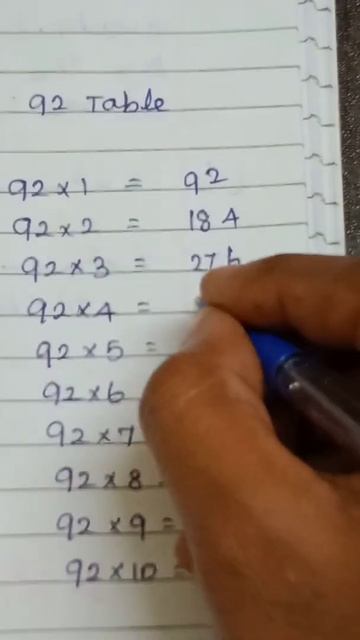 92 Table
92 × 1 = 92
92 × 2 = 184
92 × 3 = 276
92 × 4 =
92 × 5 =
92 × 6
92 × 7
92 × 8
92 × 9 =
92 × 10 =